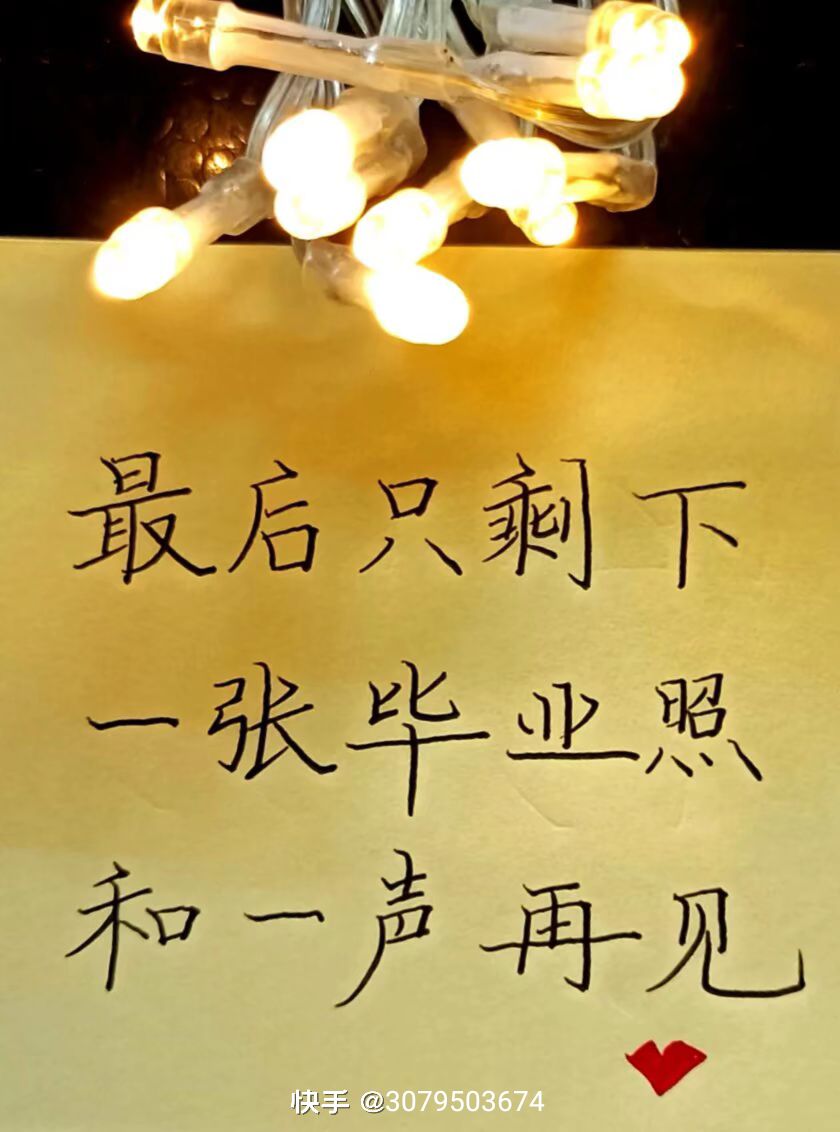 最后只剩下
一张毕业照
和一声再见
快手 @3079503674